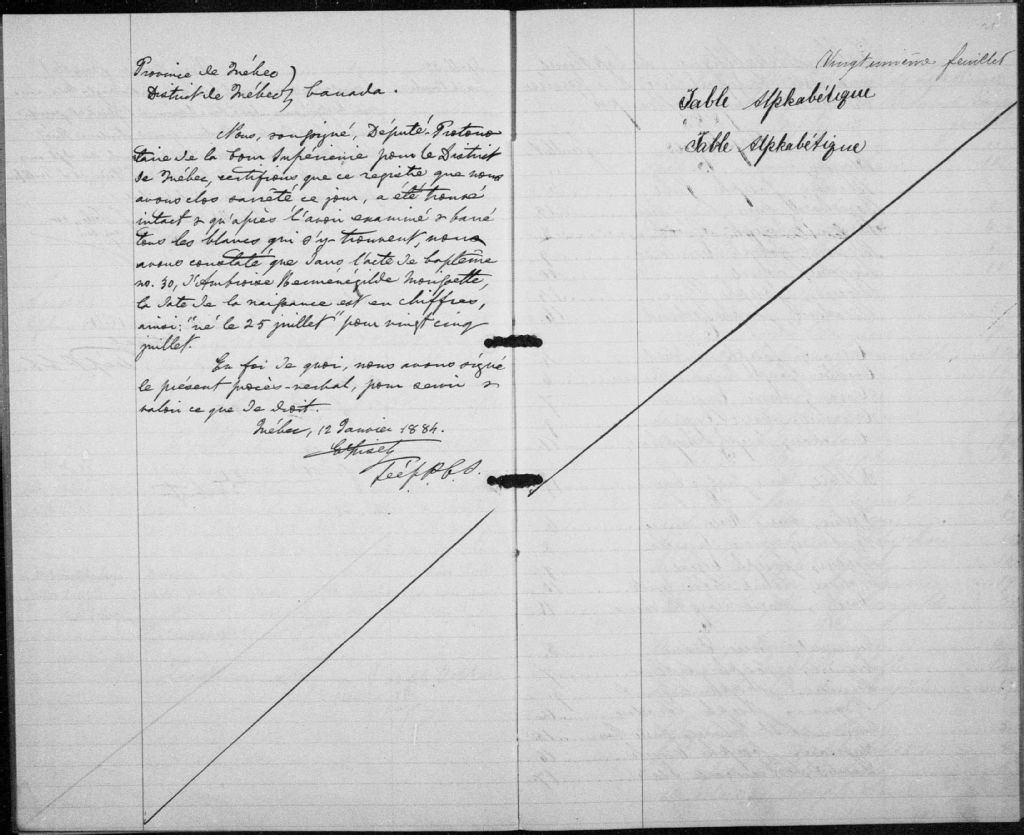 Province de Québec )
District de Québec } Canada.
Nous, soussigné, Député-Protono
taire de la Cour Supérieure pour le District
de Québec, certifions que ce registre que nous
avons clos & arrêté ce jour, a été trouvé
intact & qu'après l'avoir examiné & barré
tous les blancs qui s'y trouvent, nous
avons constaté que dans l'acte de baptême
no. 30, d'Ambroise Herménégilde
la date de la naissance est en chiffres,
ainsi: "né le 25 juillet" pour vingt cinq
juillet.
En foi de quoi, nous avons signé
le présent procès-verbal, pour servir &
valoir ce que de droit.
Québec, 12 Janvier 1884.
Dép. P. C. S.
Vingt unième feuillet
Table Alphabétique
Table Alphabétique